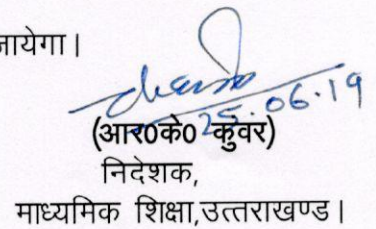 जायेगा।
25.06.19
(आर0के0 कुंवर)
निदेशक,
माध्यमिक शिक्षा,उत्तराखण्ड।